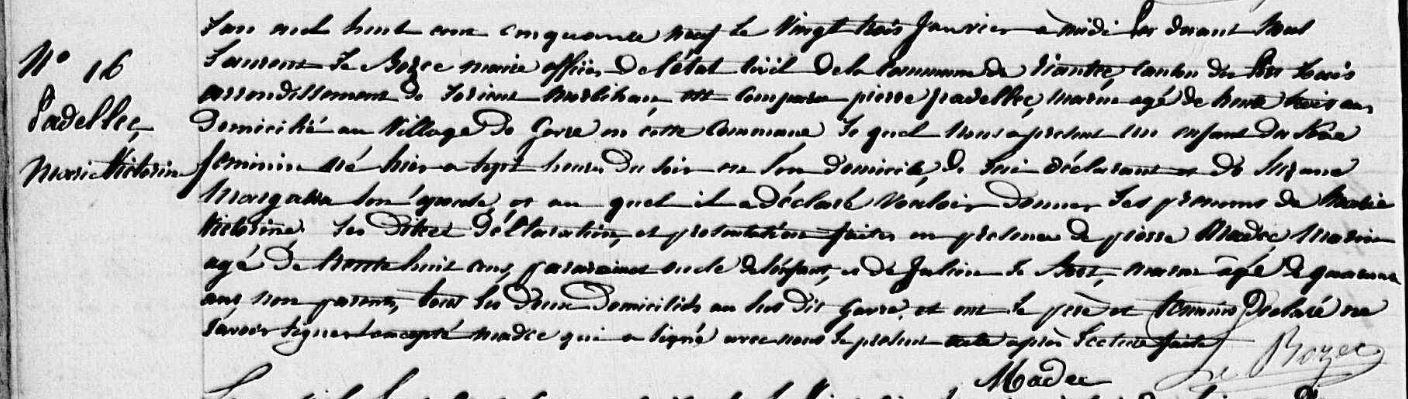 N° 16
Padellec
Marie Victorine
L'an mil huit cent cinquante neuf le vingt trois janvier a midi Par devant Nous
Laurent Le Bozec maire officier de l'état Civil de la Commune de riantec, canton du Port Louis
arrondissement de Lorient Morbihan est comparu pierre padellec, marin agé de trente trois ans
domicilié au village de Gavre en cette Commune Le quel Nous a présenté un enfant du Sexe
feminin né hier a sept heures du soir en son domicile, de lui déclarant et de
son épouse et au quel il a déclaré vouloir donner les prenoms de Marie
Victorine Les dites déclaration, et présentation faites en présence de pierre Madec Marin
agé de trente huit ans, oncle de l'enfant, et de Julien Le marin âgé de quarante
ans non parents, tous les deux domiciliés au sus dit Gavre, et ont le père et témoins déclaré ne
savoir signer excepté madec qui a signé avec nous le présent acte après lecture faite
Le Bozec
Madec